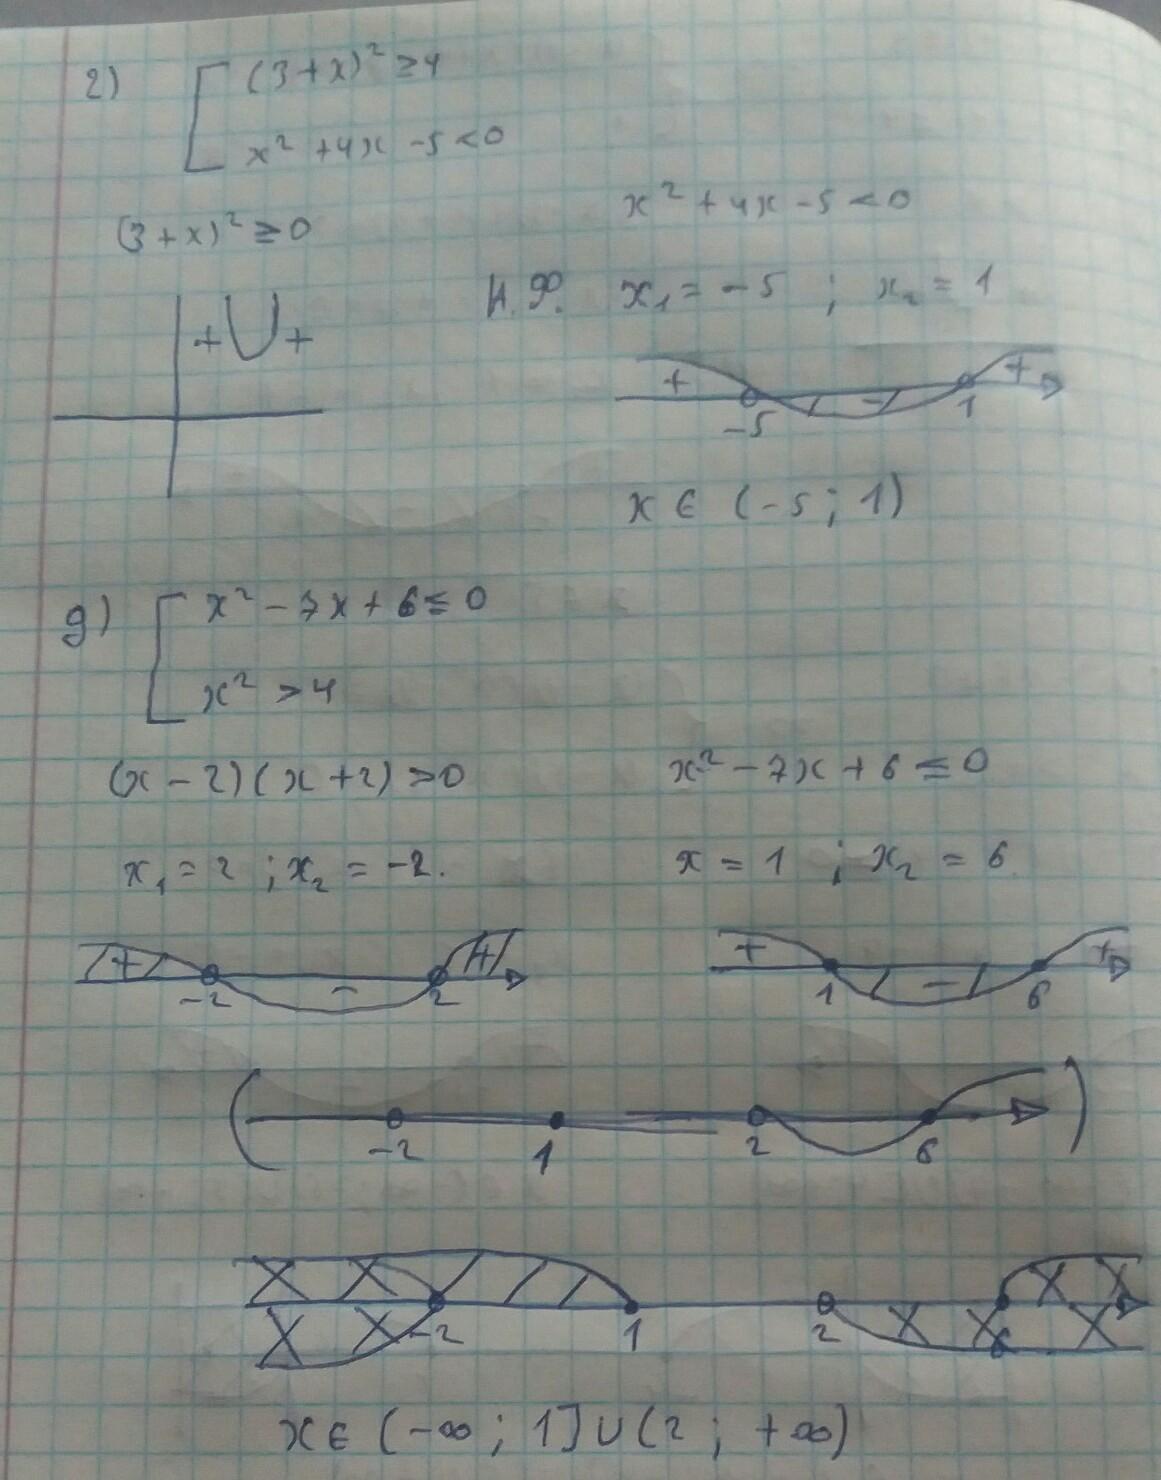 2) [ (3+x)² ≥ 4
x² + 4x - 5 < 0
(3+x)² ≥ 0
x² + 4x - 5 < 0
Н.Ф. x₁ = -5 ; x₂ = 1
+ U +
+ - +
-5 1
x ∈ (-5 ; 1)
g) [ x² - 7x + 6 ≤ 0
x² > 4
(x - 2)(x + 2) > 0
x² - 7x + 6 ≤ 0
x₁ = 2 ; x₂ = -2.
x = 1 ; x₂ = 6
+ - +
-2 2
+ - +
1 6
( -2 1 2 6 )
-2 1 2 6
x ∈ (-∞ ; 1] ∪ (2 ; +∞)